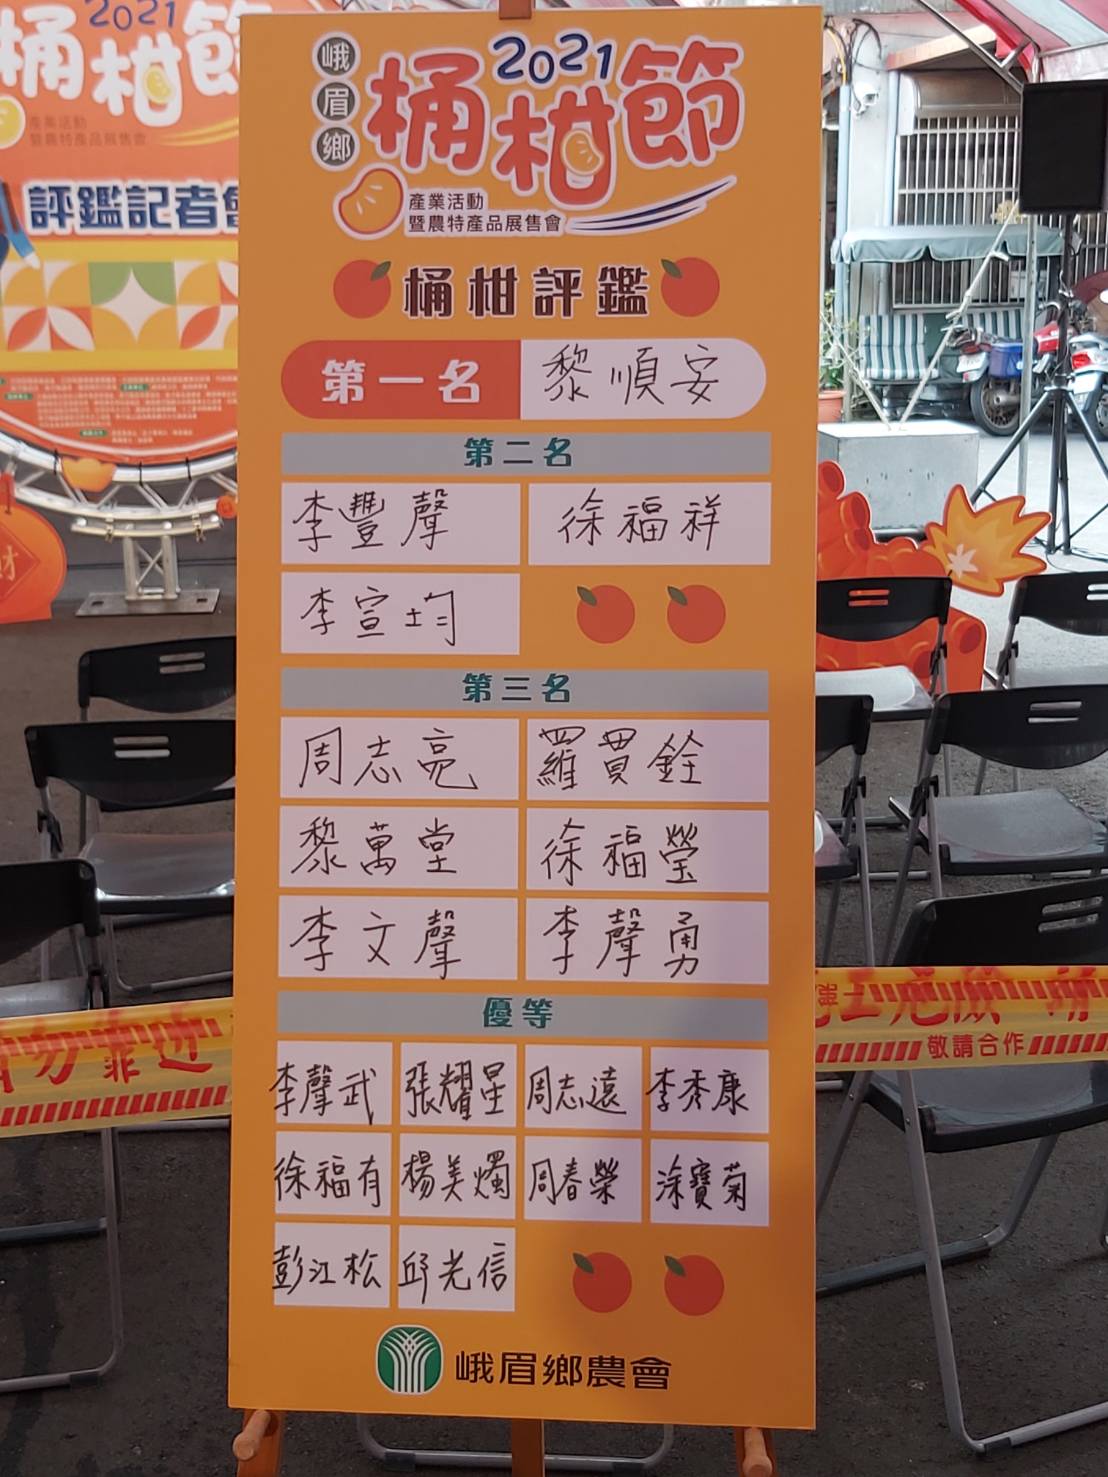 峨眉鄉
2021
桶柑節
產業活動
暨農特產品展售會
桶柑評鑑
第一名 黎順安
第二名
李豐聲 徐福祥
李宣均
第三名
周志亮 羅貫銓
黎萬堂 徐福瑩
李文聲 李聲勇
優等
李聲武 張耀星 周志遠 李秀康
徐福有 楊美燭 周春榮 涂寶菊
彭江松 邱光信
峨眉鄉農會
2021
桶柑節
產業活動
暨農特產品展售會
評鑑記者會
財
勿靠近
施工危險
敬請合作